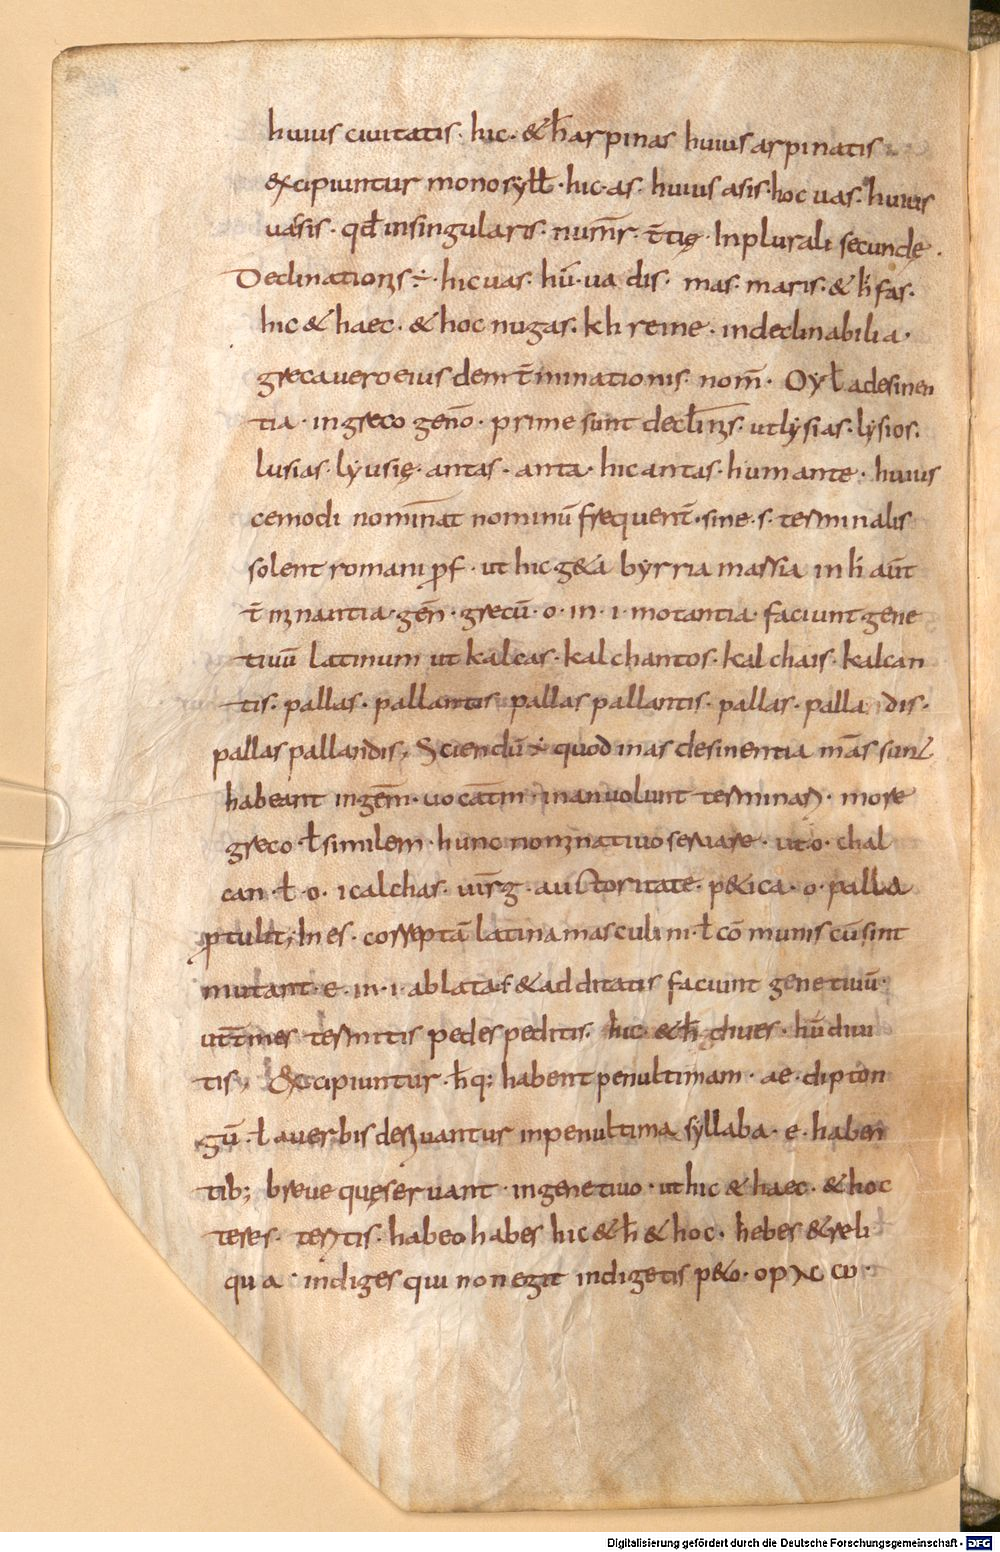 huius ciuitatis· hic· & h̄ arpinas huius arpinatis
excipiuntur monosyƚƚ· hic· as· huius asis· hoc uas· huius
uasis· qđ insingularis· num̄r· t̄tię· Inplurali secundę·
Declinationis÷· hic uas· hū· uadis· mas· maris· & h̄ fas·
hic & haec· & hoc nugas· indeclinabilia·
greca uero eiusdem t̄minationis· nom̄· ƚ adesinen
tia· ingreco geno· prime sunt declinis· ut lysias· lysios·
lusias· lyusię· antas· anta· hic antas· hum ante· huius
cemodi nominat nominū frequent̄· sine· s· terminalis
solent romani ꝓf· ut hic g&a byrria massia in h̄ aūt
t̄minantia· geñ· grecū· o· in· i· motantia· faciunt gene
tiuū latinum ut kalcas· kalchantos· kalchais· kalcan
tis· pallas· pallantis pallas pallantis· pallas· palladis·
pallas pallandis; Sciendū ÷ quod in as desinentia mas sunt
habeant in geñ· uocatiū· in an uolunt terminari· more
greco· ƚ similem· hunc nominatiuo seruare· ut· o· chal
can· ƚ· o· icalchas· uirg· auctoritate· p&ica· o· palla
ꝓtulit; In es· correptā latina masculini· ƚ cōmunis cū sint
mutant· e· in· i· ablata s & additatis faciunt genetiuū·
ut t̄mes termitis pedes peditis· hic· & h̄ diues· hū diui
tis; Excipiuntur· h̄ q; habent penultimam· ae· dipton
gū· ƚ auerbis deriuantur inpenultima syllaba· e· haben
tib; breue quę seruant· ingenetiuo· ut hic & haec· & hoc
teres· teretis· habeo habes hic & h̄ & hoc· hebes & reli
qua· indiges qui non egit indigetis p&o·
Digitalisierung gefördert durch die Deutsche Forschungsgemeinschaft - DFG